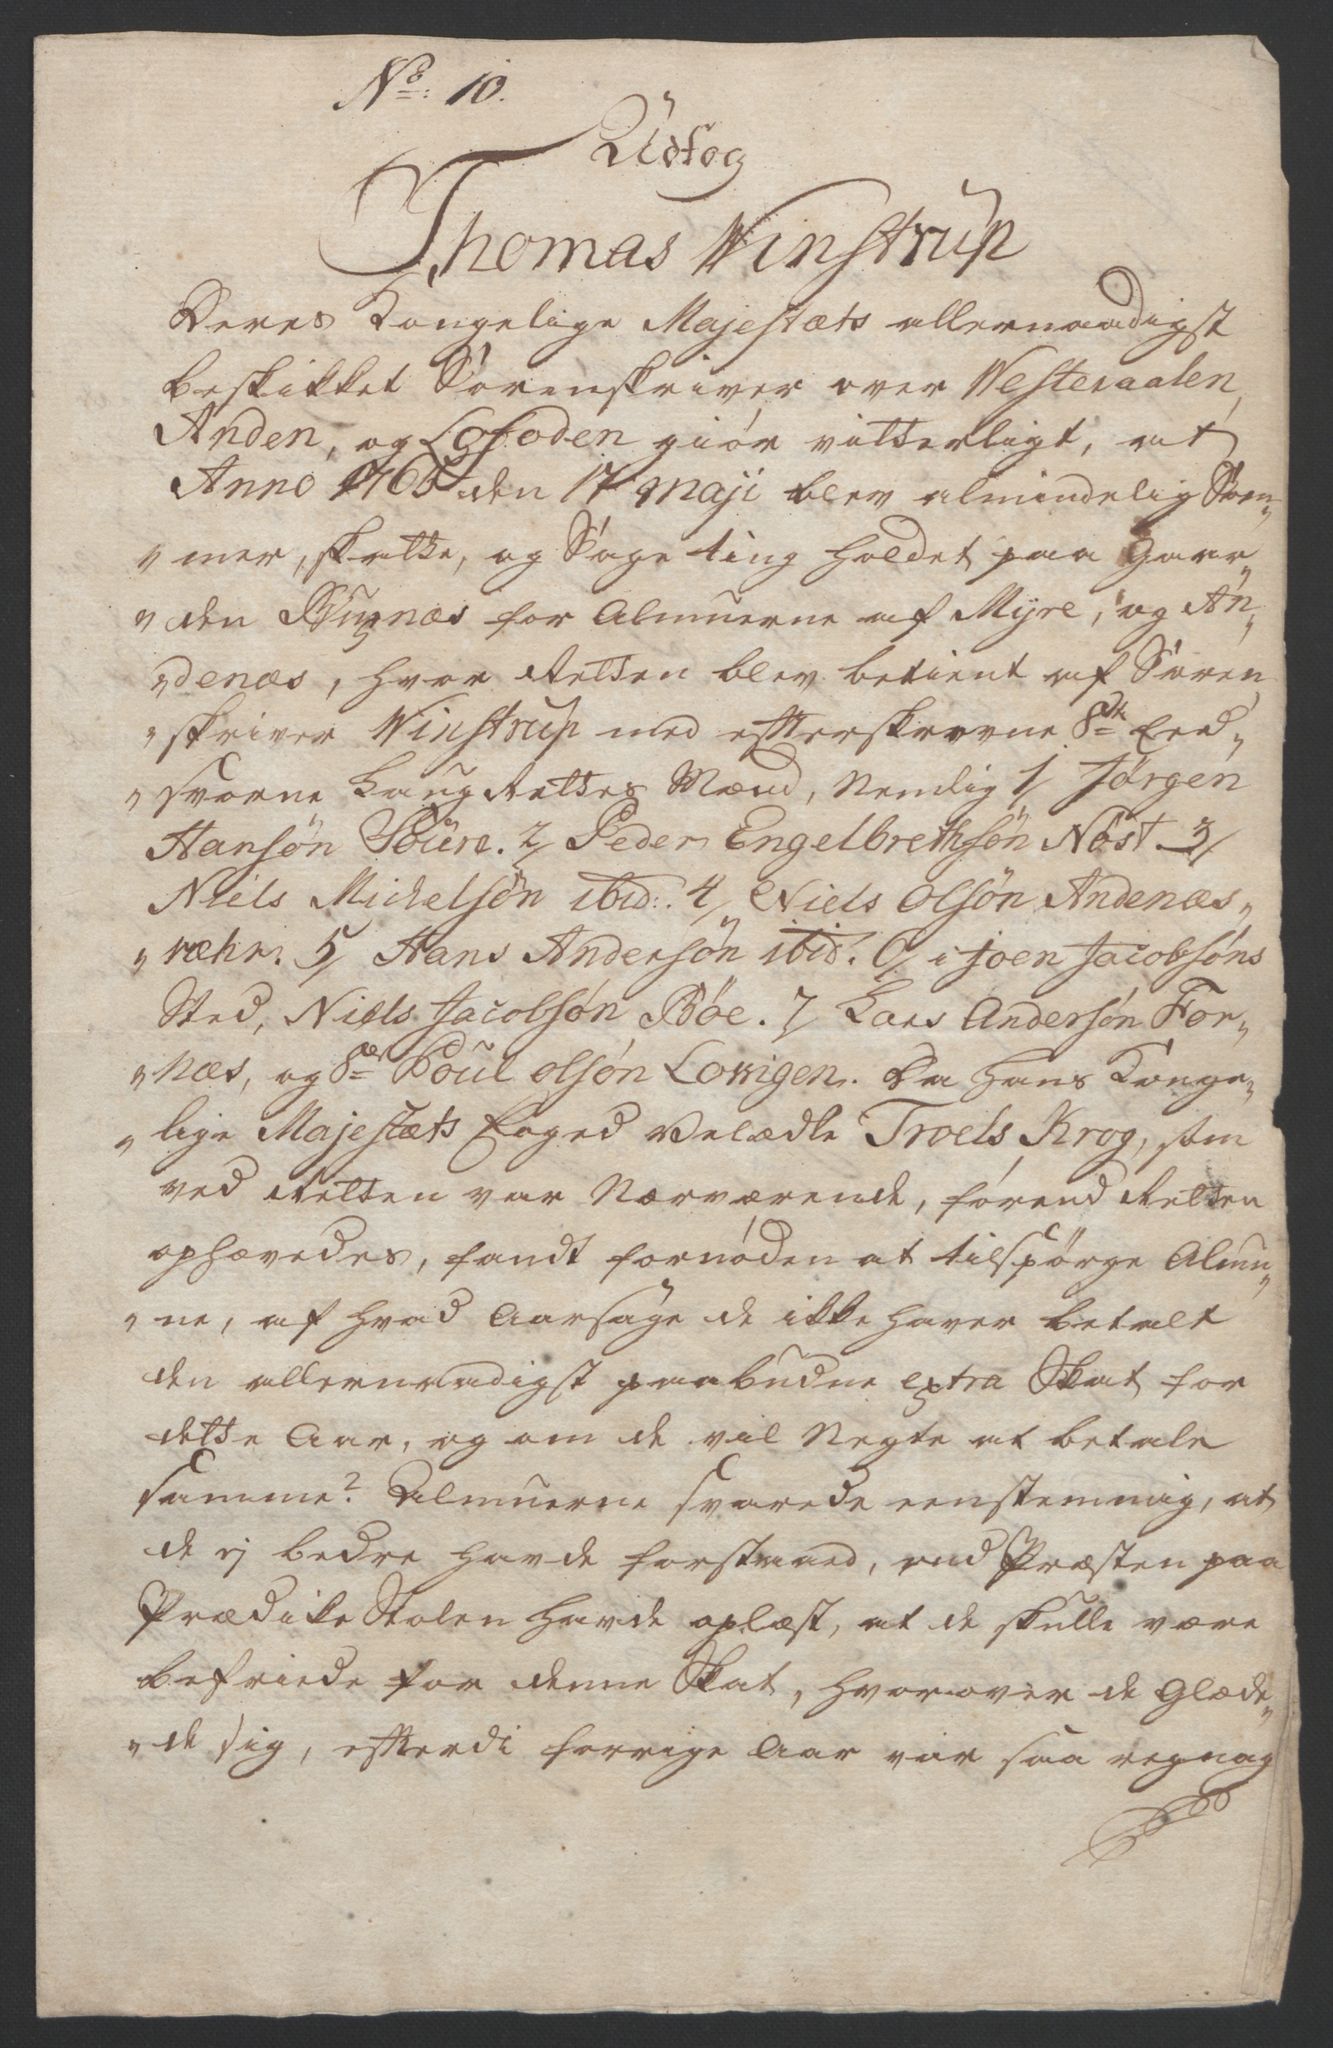 No: 10.
Udtog
Thomas Winstrup
Deres Kongelige Majestæts allernaadigst
beskikket Sorenskriver over Westeraalen,
Anden, og Lofoden giör vitterligt, at
Anno 1765 den 17 Maji blev almindelig Som-
mer, skatte, og Sage ting holdet paa Gaar-
den Buxnæs for Almuerne af Myre, og An-
denæs, hvor Retten blev betient af Soren-
skriver Winstrup med efterskrevne 8te Eed-
svorne Laug Rettes Mænd, Nemlig 1/ Jørgen
Hansøn Soure. 2/ Peder Engelbrethsøn Nøst 3/
Niels Michelsøn ibid: 4/ Niels Olsøn Andenæs-
wæhr. 5/ Hans Andersøn ibid. 6/ i Joen Jacobsøns
Sted, Niels Jacobsøn Bøe. 7/ Lars Andersøn For-
næs, og 8de Poul olsøn Lovigen. Da Hans Konge-
lige Majestæts Foged Velædle Troels Krog, som
ved Retten var Nærværende, førend Retten
ophævedes, fandt fornøden at tilspørge Almu-
ne, af hvad Aarsage de ikke haver betalt
den allernaadigst paabudne extra Skat for
dette Aar, og om de vil Negte at betale
samme? Almuerne svarede eenstemmig, at
de ej bedre havde forstaaed, end Præsten paa
Prædike Stolen havde oplæst, at de skulle være
befriede for denne Skat, hvorover de Glæde-
de sig, efterdi forrige Aar var saa regnag